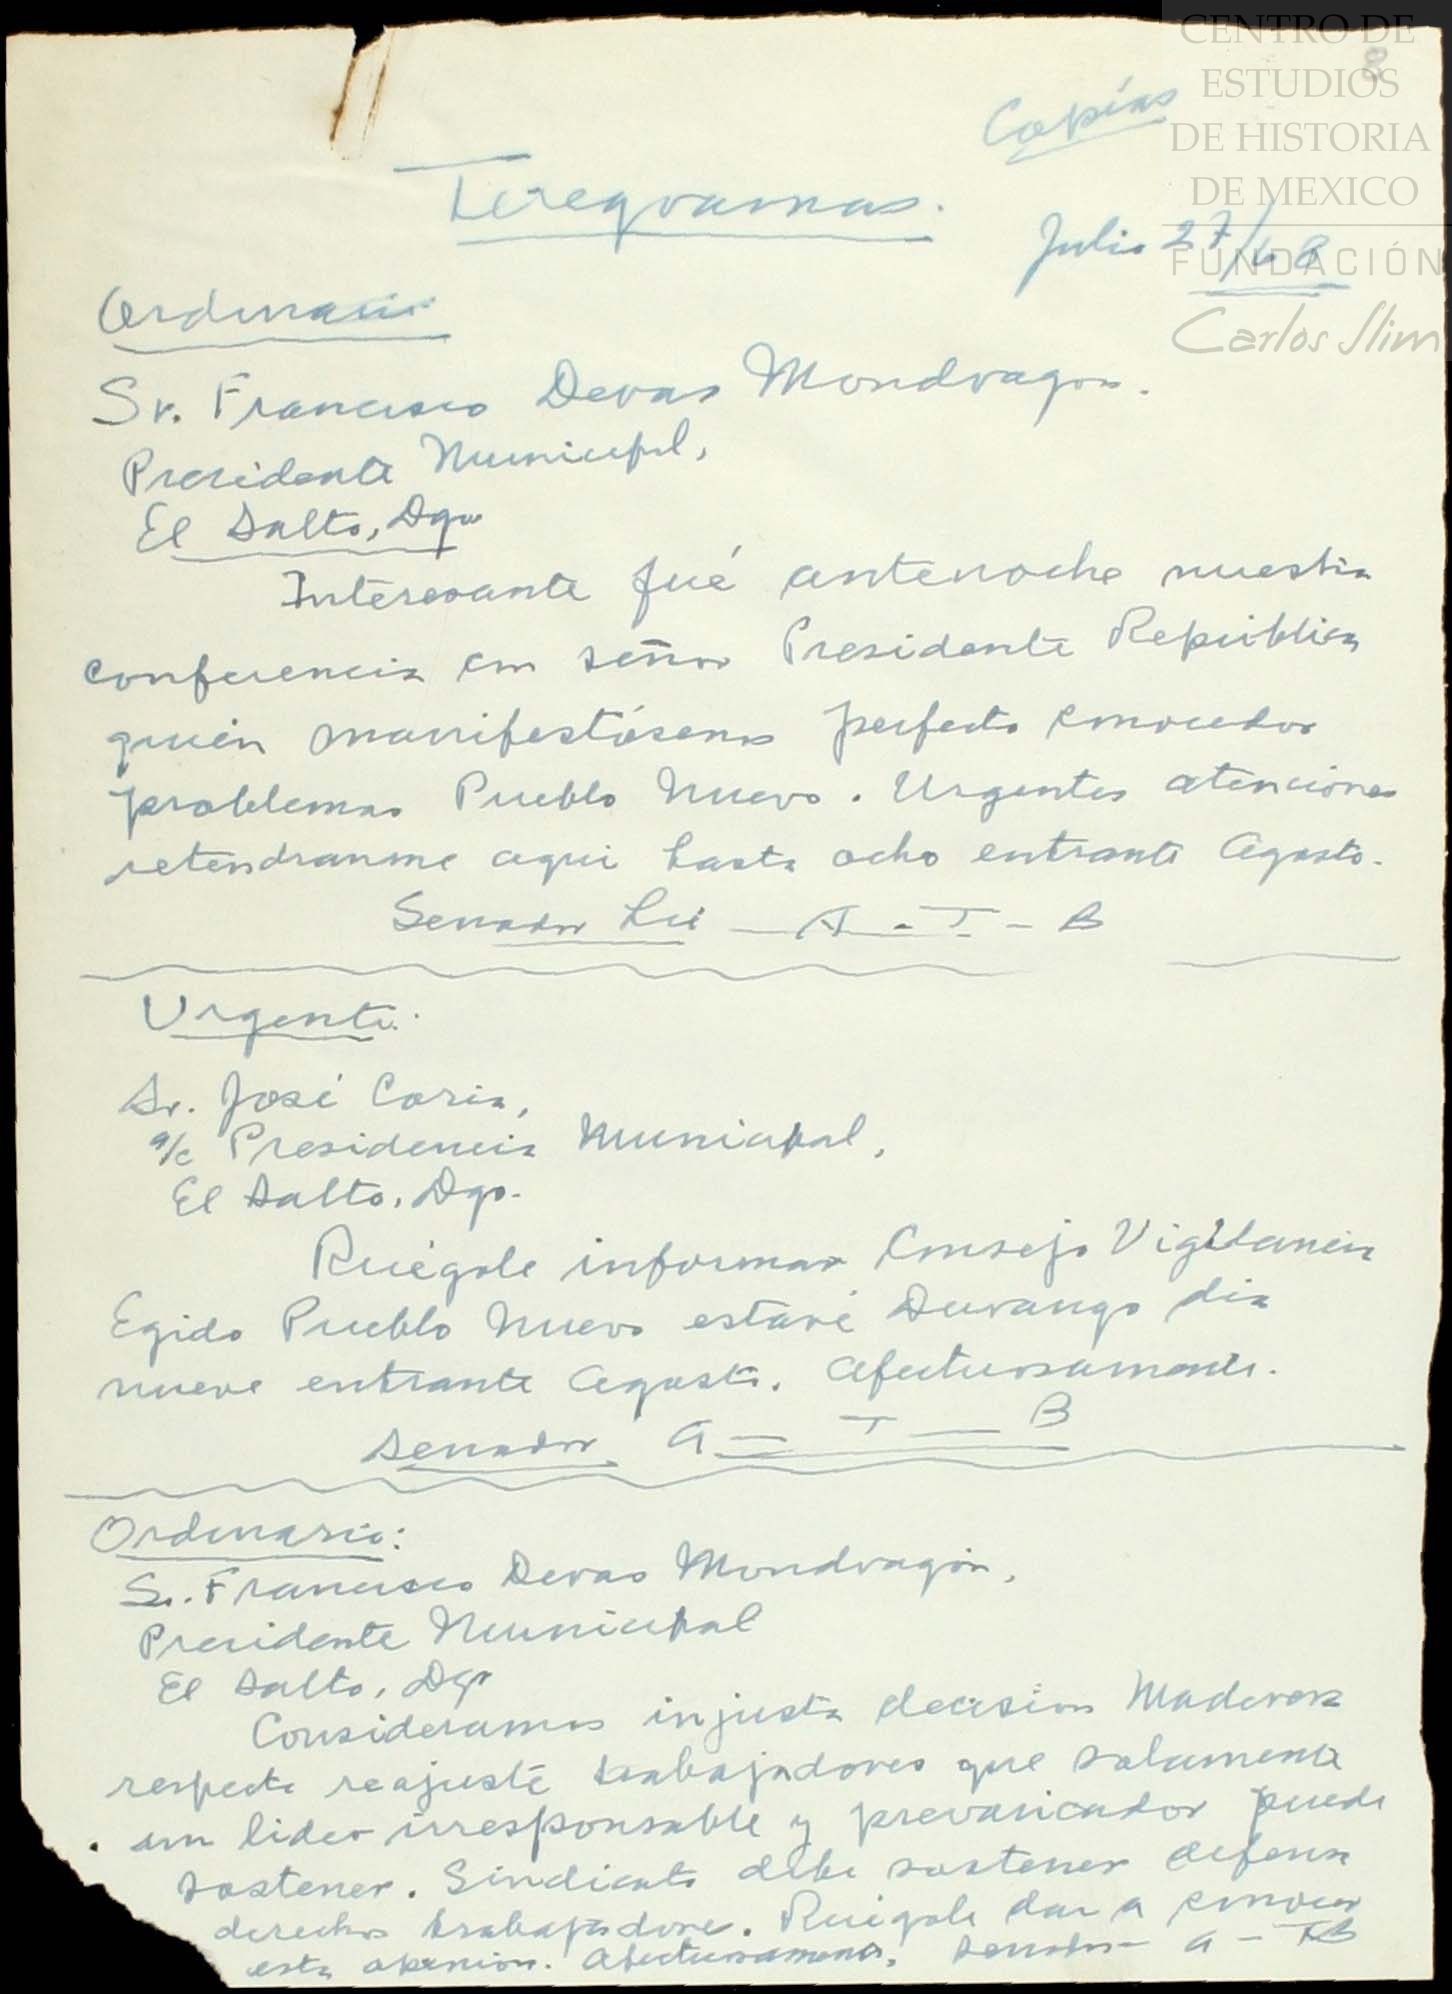 CENTRO DE
ESTUDIOS
DE HISTORIA
DE MEXICO
FUNDACIÓN
Carlos Slim
8
Copias
Telegramas.
Julio 27/48
Ordinario
Sr. Francisco Devas Mondragon.
Presidente Municipal,
El Salto, Dgo
Interesante fué antenoche nuestra
conferencia con señor Presidente República
quién manifestósenos perfecto conocedor
problemas Pueblo Nuevo. Urgentes atenciones
retendranme aqui hasta ocho entrante Agosto.
Senador Lic A - T - B
Urgente:
Sr. José Coria,
a/c Presidencia Municipal,
El Salto, Dgo.
Ruégole informar Consejo Vigilancia
Egido Pueblo Nuevo estaré Durango dia
nueve entrante Agosto. Afectuosamente.
Senador A — T — B
Ordinario:
Sr. Francisco Devas Mondragón,
Presidente Municipal
El Salto, Dgo
Consideramos injusta decision Maderera
respecto reajuste trabajadores que solamente
un lider irresponsable y prevaricador puede
sostener. Sindicato debe sostener defensa
derechos trabajadores. Ruégole dar a conocer
esta opinion. Afectuosamente, Senador A - TB